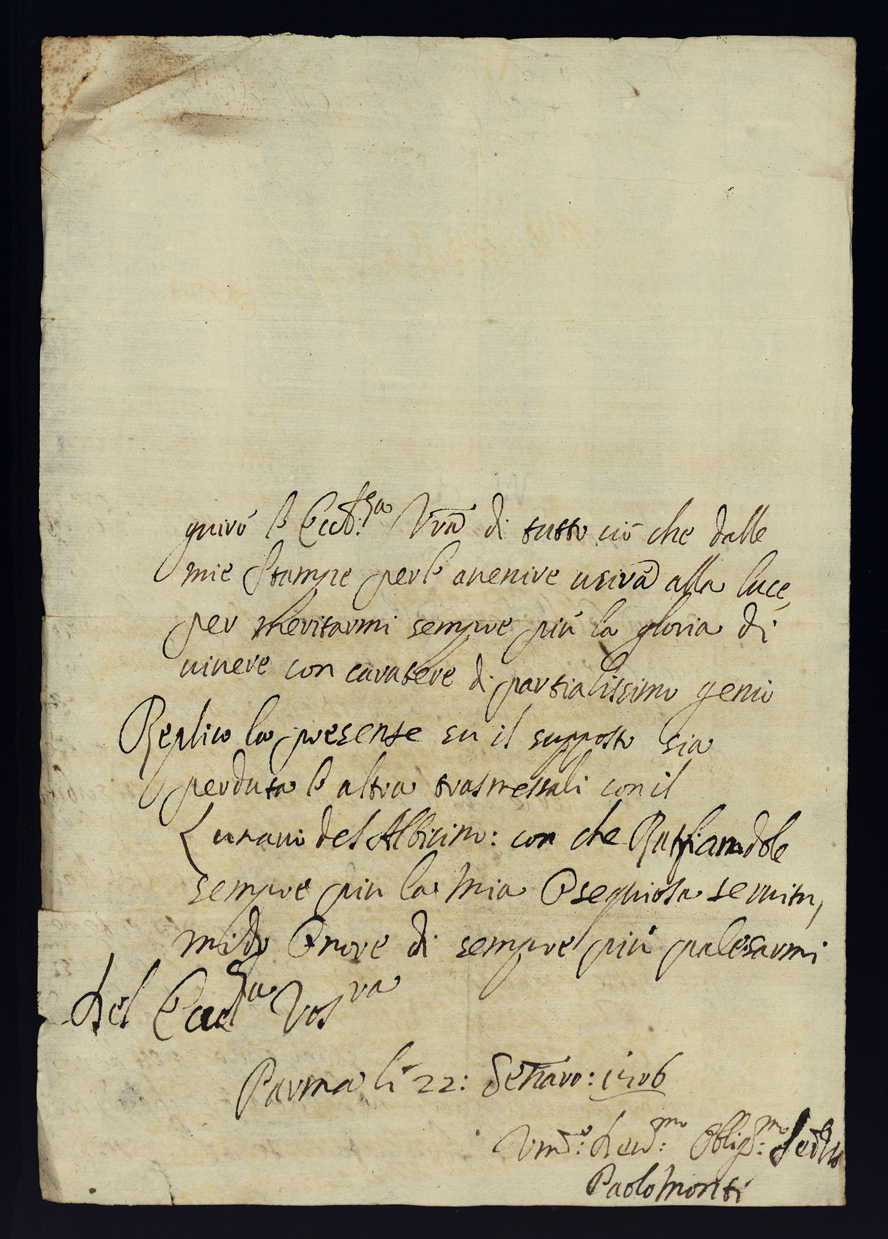 guirò l'Eccel:za Vra di tutto ciò che dalle
mie Stampe per l'avenire usirà alla luce,
per meritarmi sempre più la gloria di
vivere con caratere di partialissimo genio
Replico la presente su il supposto sia
perduta l'altra trasmessali con il
Lunario del Albicino: con che
sempre più la mia Osequiosa servitu,
mi do Onore di sempre più palesarmi
Del Ecce:za Vosra
Parma li 22: Genaro: 1706
Oblig:mo
Paolo Monti